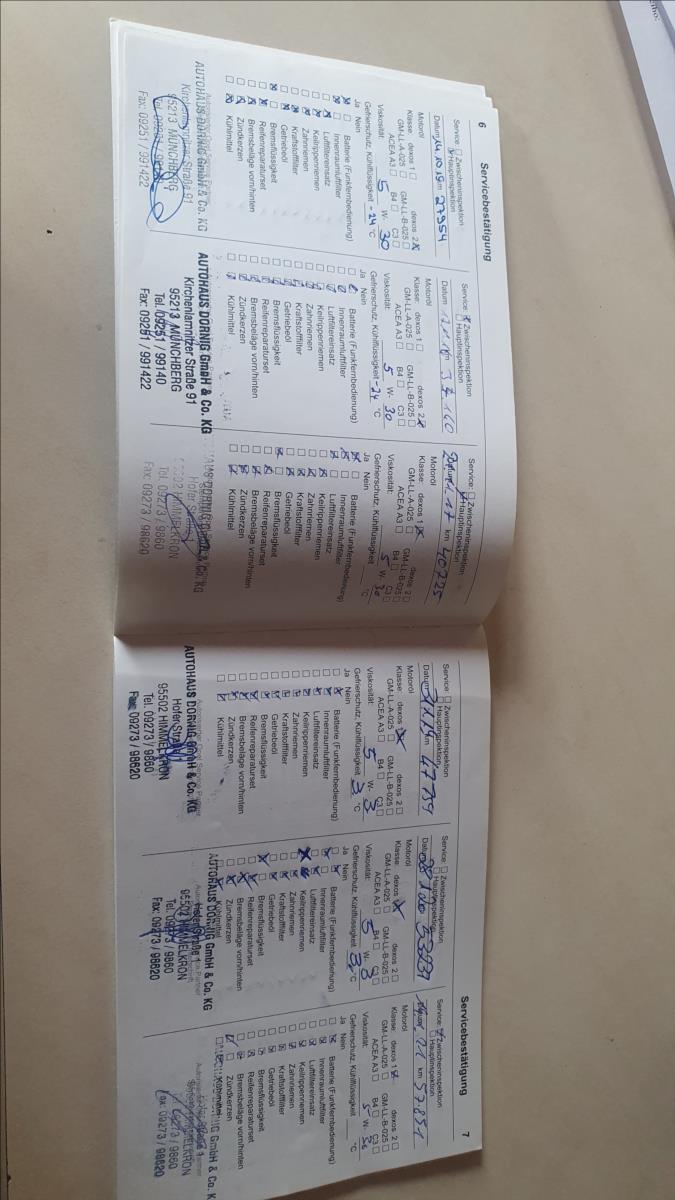 6 Servicebestätigung
Service: Zwischeninspektion
Hauptinspektion
Datum 14.10.15 km 27954
Motoröl
Klasse: dexos 1 dexos 2
GM-LL-A-025 GM-LL-B-025
ACEA A3 B4 C3
Viskosität: 5 W- 30
Gefrierschutz, Kühlflüssigkeit -24 °C
Ja Nein
Batterie (Funkfernbedienung)
Innenraumluftfilter
Luftfiltereinsatz
Keilrippenriemen
Zahnriemen
Kraftstofffilter
Getriebeöl
Bremsflüssigkeit
Reifenreparaturset
Bremsbeläge vorn/hinten
Zündkerzen
Kühlmittel
AUTOHAUS DORNIG GmbH & Co. KG
Kirchenlamnitzer Straße 91
95213 MÜNCHBERG
Fax: 09251 / 991422
Service: Zwischeninspektion
Hauptinspektion
Datum km 37160
Motoröl
Klasse: dexos 1 dexos 2
GM-LL-A-025 GM-LL-B-025
ACEA A3 B4 C3
Viskosität: 5 W- 30
Gefrierschutz, Kühlflüssigkeit -24 °C
Ja Nein
Batterie (Funkfernbedienung)
Innenraumluftfilter
Luftfiltereinsatz
Keilrippenriemen
Zahnriemen
Kraftstofffilter
Getriebeöl
Bremsflüssigkeit
Reifenreparaturset
Bremsbeläge vorn/hinten
Zündkerzen
Kühlmittel
AUTOHAUS DORNIG GmbH & Co. KG
Kirchenlamnitzer Straße 91
95213 MÜNCHBERG
Tel. 09251 / 99140
Fax: 09251 / 991422
Service: Zwischeninspektion
Hauptinspektion
km 40725
Motoröl
Klasse: dexos 1 dexos 2
GM-LL-A-025 GM-LL-B-025
ACEA A3 B4 C3
Viskosität: 5 W- 30
Gefrierschutz, Kühlflüssigkeit °C
Ja Nein
Batterie (Funkfernbedienung)
Innenraumluftfilter
Luftfiltereinsatz
Keilrippenriemen
Zahnriemen
Kraftstofffilter
Getriebeöl
Bremsflüssigkeit
Reifenreparaturset
Bremsbeläge vorn/hinten
Zündkerzen
Kühlmittel
HIMMELKRON
Tel. 09273 / 9860
Fax: 09273 / 98620
Servicebestätigung 7
Service: Zwischeninspektion
Hauptinspektion
Datum km 47759
Motoröl
Klasse: dexos dexos 2
GM-LL-A-025 GM-LL-B-025
ACEA A3 B4 C3
Viskosität: 5 W- 3
Gefrierschutz, Kühlflüssigkeit °C
Ja Nein
Batterie (Funkfernbedienung)
Innenraumluftfilter
Luftfiltereinsatz
Keilrippenriemen
Zahnriemen
Kraftstofffilter
Getriebeöl
Bremsflüssigkeit
Reifenreparaturset
Bremsbeläge vorn/hinten
Zündkerzen
Kühlmittel
AUTOHAUS DORNIG GmbH & Co. KG
Hofer Straße 1
95502 HIMMELKRON
Tel. 09273 / 9860
Fax: 09273 / 98620
Service: Zwischeninspektion
Hauptinspektion
Motoröl
Klasse: dexos dexos 2
GM-LL-A-025 GM-LL-B-025
ACEA A3 B4 C3
Viskosität: 5 W-
Gefrierschutz, Kühlflüssigkeit °C
Ja Nein
Batterie (Funkfernbedienung)
Innenraumluftfilter
Luftfiltereinsatz
Keilrippenriemen
Zahnriemen
Kraftstofffilter
Getriebeöl
Bremsflüssigkeit
Reifenreparaturset
Bremsbeläge vorn/hinten
Zündkerzen
Kühlmittel
AUTOHAUS DORNIG GmbH & Co. KG
Hofer Straße 1
95502 HIMMELKRON
Tel. 09273 / 9860
Fax: 09273 / 98620
Service: Zwischeninspektion
Hauptinspektion
km 57851
Motoröl
Klasse: dexos 1 dexos 2
GM-LL-A-025 GM-LL-B-025
ACEA A3 B4 C3
Viskosität: 5 W- 30
Gefrierschutz, Kühlflüssigkeit °C
Ja Nein
Batterie (Funkfernbedienung)
Innenraumluftfilter
Luftfiltereinsatz
Keilrippenriemen
Zahnriemen
Kraftstofffilter
Getriebeöl
Bremsflüssigkeit
Reifenreparaturset
Bremsbeläge vorn/hinten
Zündkerzen
Kühlmittel
GmbH & Co. K
/ 9860
Fax: 09273 / 98620